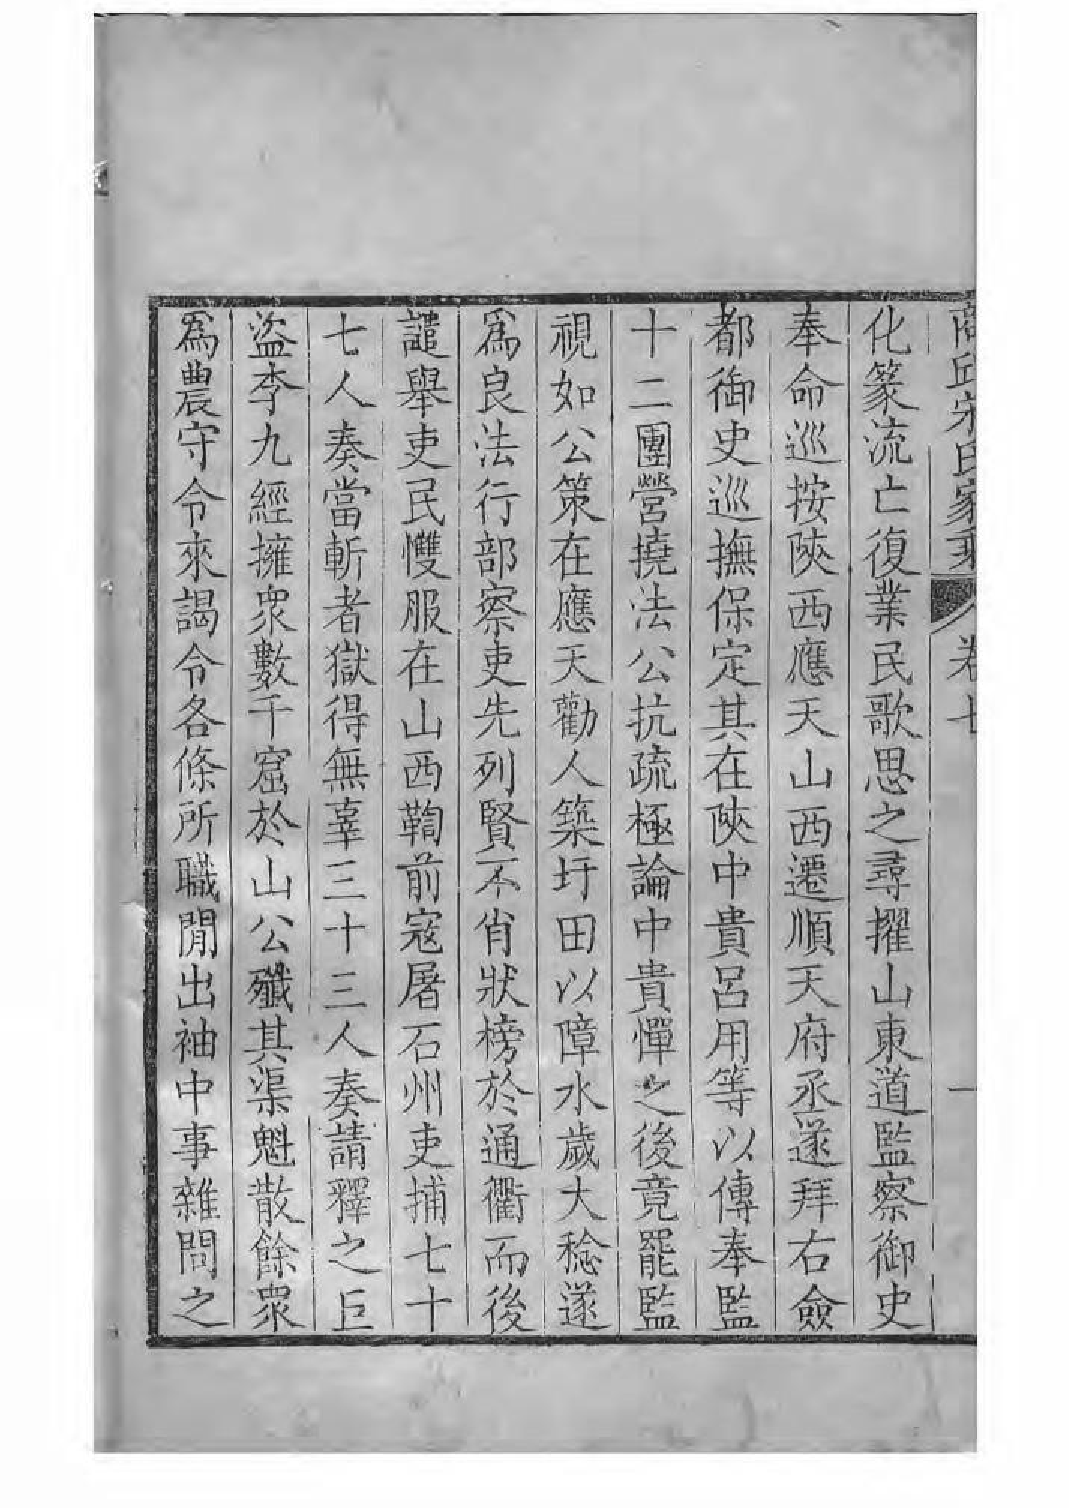 商丘宋氏家乘 卷七 一
化篆流亡復業民歌思之尋擢山東道監察御史
奉命巡按陝西應天山西遷順天府丞遂拜右僉
都御史巡撫保定其在陝中貴呂用等以傳奉監
十二團營撓法公抗疏極論中貴憚之後竟罷監
視如公策在應天勸人築圩田以障水歲大稔遂
為良法行部察吏先列賢不肖狀榜於通衢而後
譴舉吏民慴服在山西鞫前寇屠石州吏捕七十
七人奏當斬者獄得無辜三十三人奏請釋之巨
盜李九經擁眾數千窟於山公殲其渠魁散餘眾
為農守令來謁令各條所職閒出袖中事雜問之